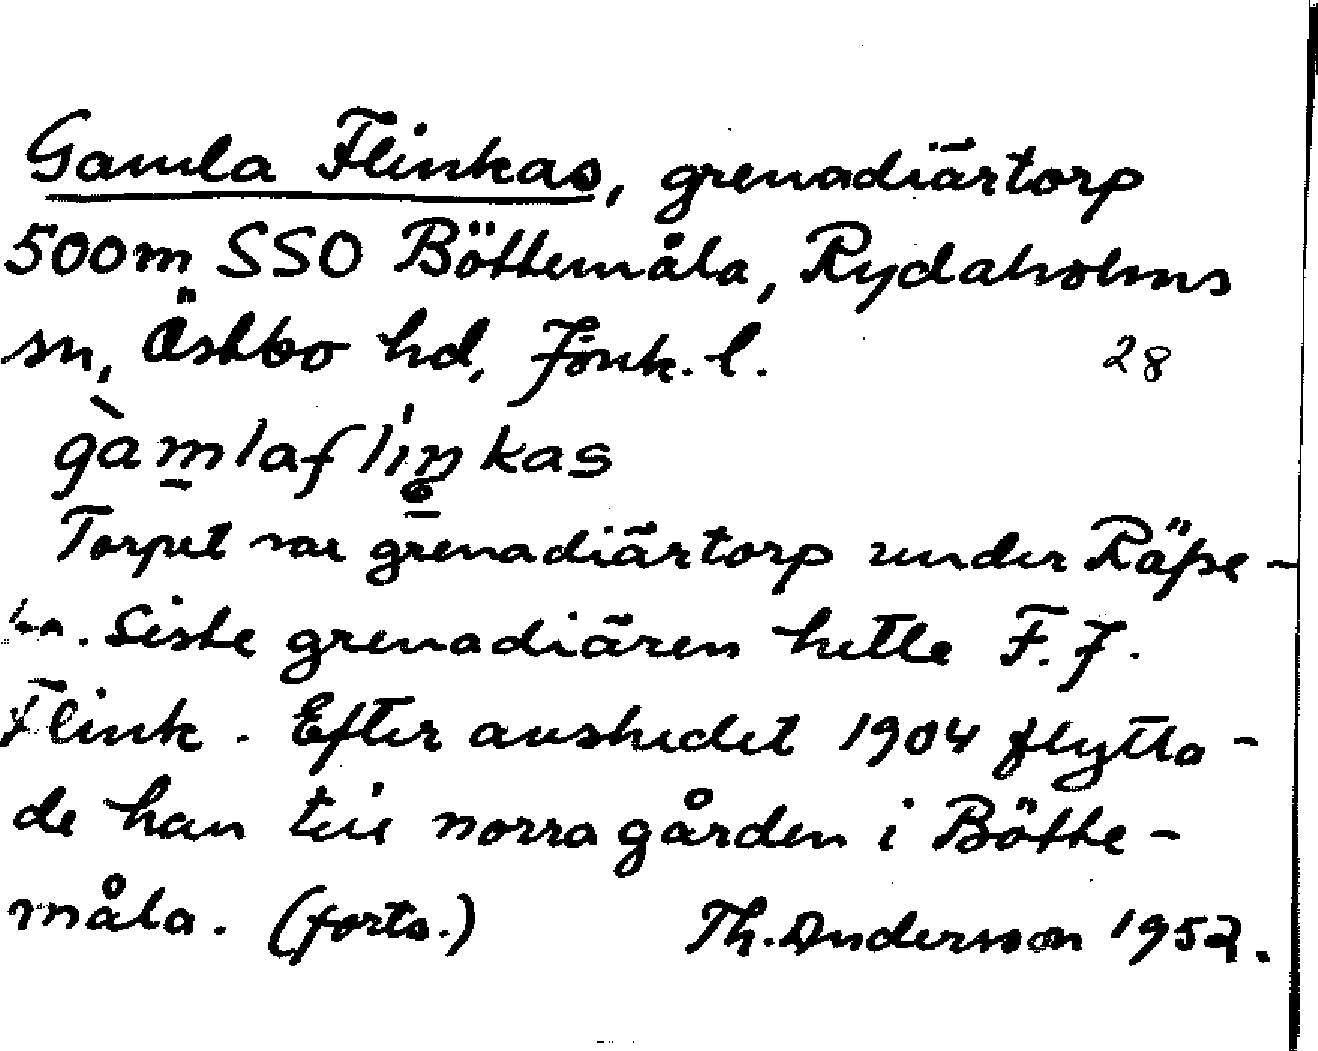 Gamla Flinkas, grenadiärtorp
500m SSO Böttemåla, Rydaholms
sn, Östbo hd, Jönk. l. 28
gàmlaflíŋkas
Torpet var grenadiärtorp under Räpe-
Siste grenadiären hette F. J.
Flink. Efter avskedet 1904 flytta-
de han till norra gården i Bötte-
måla. (forts.) Th. Andersson 1952.